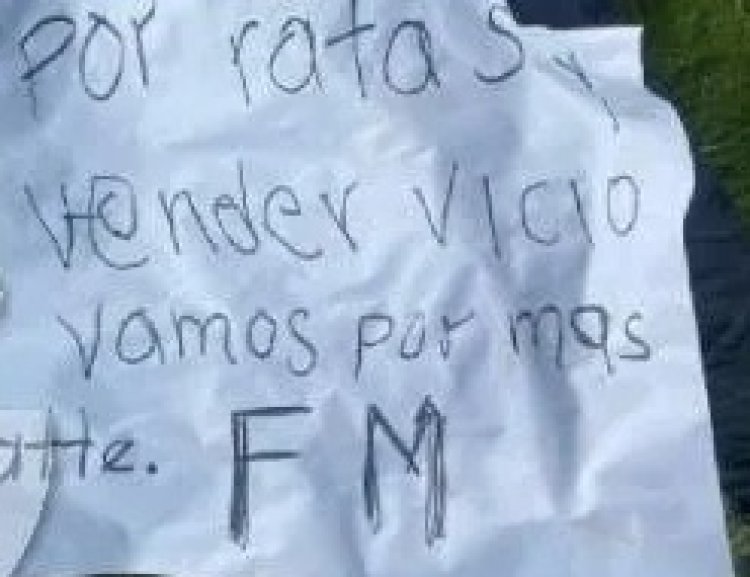 Por ratas y
vender vicio
vamos por mas
atte. FM